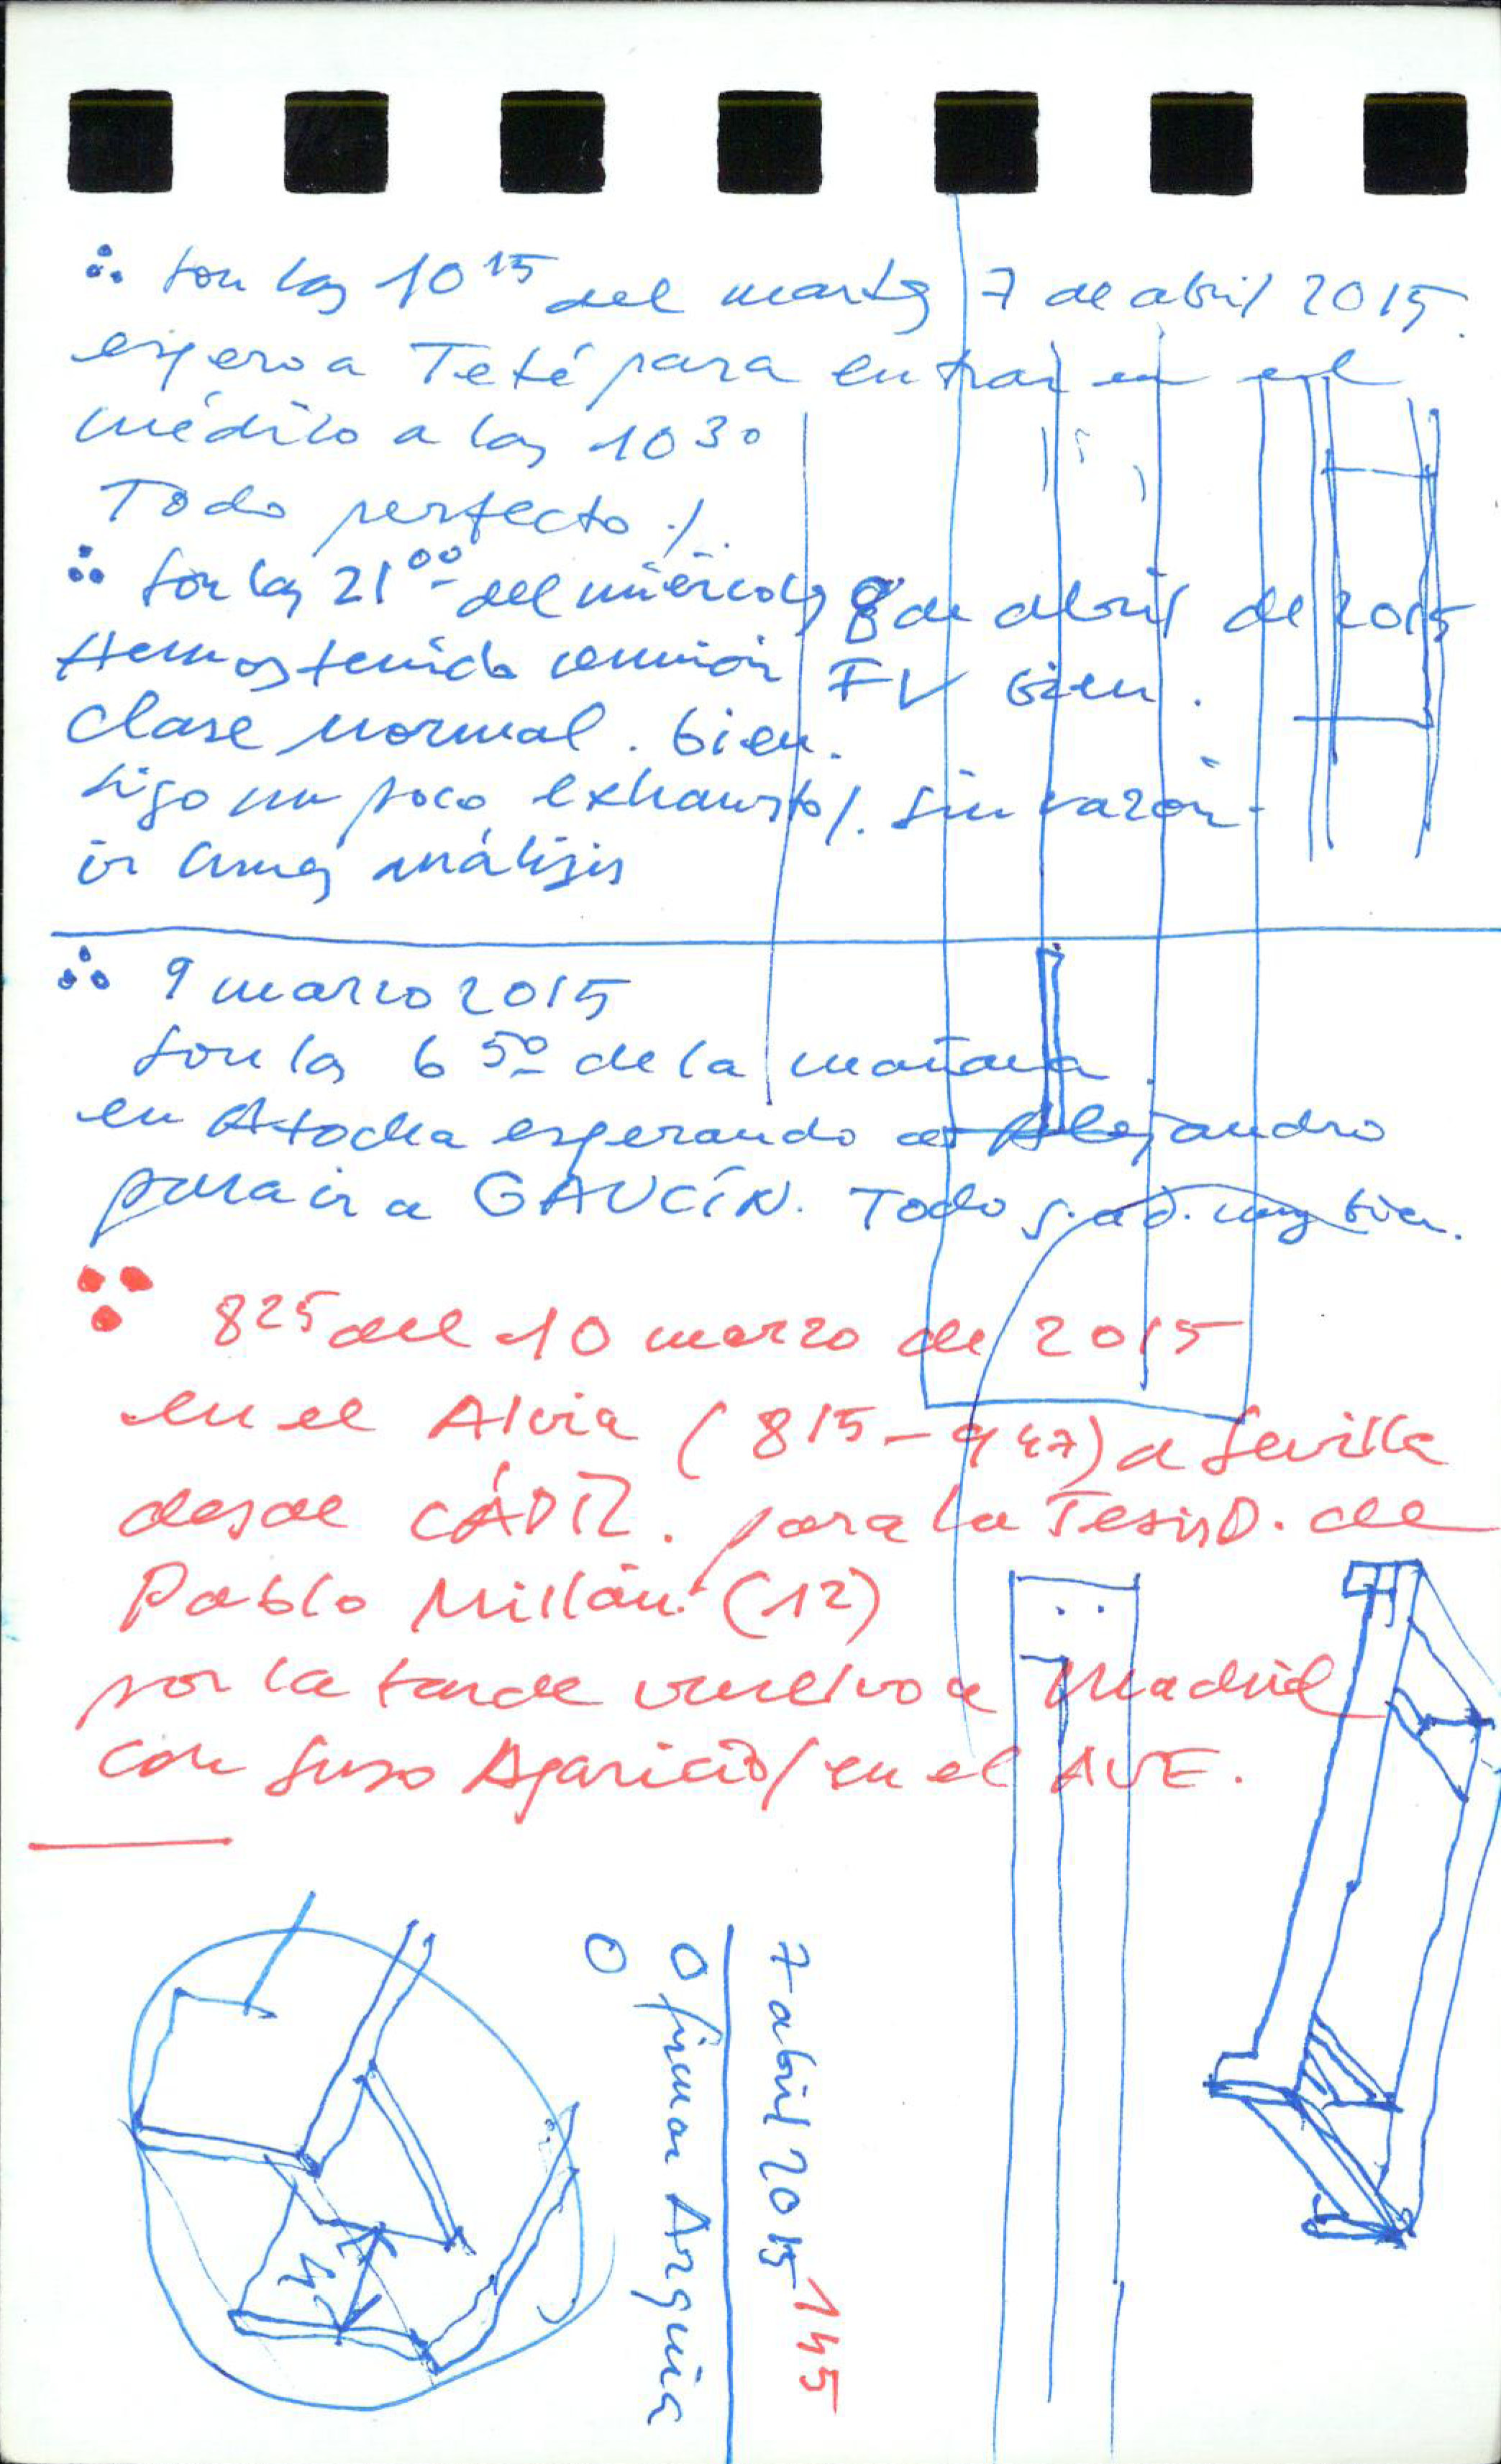 ∴ son las 10 15 del martes 7 de abril 2015.
espero a Teté para entrar en el
médico a las 10 30
Todo perfecto /.
∴ son las 21 00 del miércoles 8 de abril de 2015
Hemos tenido reunión FV bien.
Clase normal. bien.
sigo un poco exhausto/. sin razón
ir análisis
∴ 9 marzo 2015
son las 6 50 de la mañana.
en Atocha esperando a Alejandro
para ir a GAUCÍN. Todo muy bien.
∵ 8 25 del 10 marzo de 2015
en el Alvia (8 15 – 9 47) a Sevilla
desde CÁDIZ. para la Tesis D. de
Pablo Millán. (12)
por la tarde vuelvo a Madrid
con Suso Aparicio/ en el AVE.
7 abril 2015 145
O firmar Arguia
O